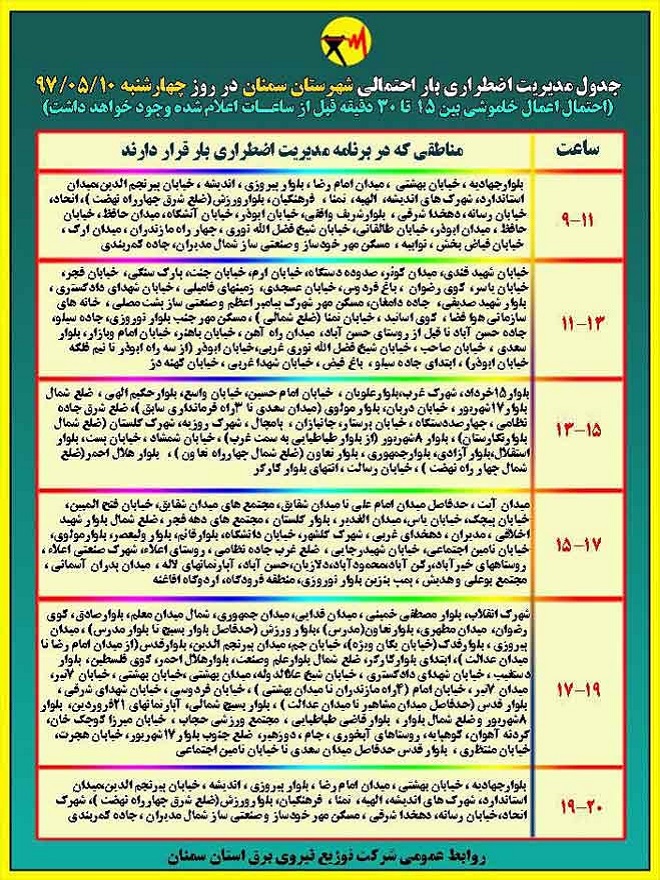 جدول مدیریت اضطراری بار احتمالی شهرستان سمنان در روز چهارشنبه ۹۷/۰۵/۱۰
(احتمال اعمال خاموشی بین ۱۵ تا ۳۰ دقیقه قبل از ساعات اعلام شده وجود خواهد داشت)
ساعت
مناطقی که در برنامه مدیریت اضطراری بار قرار دارند
۹-۱۱
بلوارجهادیه ، خیابان بهشتی ، میدان امام رضا ، بلوار پیروزی ، اندیشه ، خیابان پیرنجم الدین،میدان
استاندارد، شهرک های اندیشه، الهیه، تمنا ، فرهنگیان، بلوارورزش(ضلع شرق چهارراه نهضت )، اتحاد،
خیابان رسانه ، دهخدا شرقی ، بلوارشریف واقفی، خیابان ابوذر، خیابان آتشگاه، میدان حافظ، خیابان
حافظ ، میدان ابوذر، خیابان طالقانی، خیابان شیخ فضل الله نوری ، چهار راه مازندران ، میدان ارک ،
خیابان فیاض بخش ، نوابیه ، مسکن مهر خودساز و صنعتی ساز شمال مدیران، جاده کمربندی
۱۱-۱۳
خیابان شهید قندی، میدان کوثر، صدوده دستگاه، خیابان ارم، خیابان جنت، پارک سنگی، خیابان فجر،
خیابان یاسر، کوی رضوان ، باغ فردوس، خیابان عسجدی، زمینهای فامیلی ، خیابان شهدای دادگستری ،
بلوار شهید صدیقی، جاده دامغان، مسکن مهر شهرک پیامبر اعظم و صنعتی ساز پشت مصلی ، خانه های
سازمانی هوا فضا ، کوی اساتید ، خیابان تمنا (ضلع شمالی ) ، مسکن مهر جنب بلوار نوروزی، جاده سیلو،
جاده حسن آباد تا قبل از روستای حسن آباد، میدان راه آهن ، خیابان باهنر، خیابان امام وبازار، بلوار
سعدی ، خیابان صاحب ، خیابان شیخ فضل الله نوری غربی،خیابان ابوذر (از سه راه ابوذر تا نیم فلکه
خیابان ابوذر) ، ابتدای جاده سیلو ، باغ فیض ، خیابان شهدا غربی ، خیابان کهنه دژ
۱۳-۱۵
بلوار۱۵خرداد، شهرک غرب،بلوارعلویان ، خیابان امام حسین، خیابان واسع، بلوارحکیم الهی ، ضلع شمال
بلوار ۱۷شهریور ، خیابان دربان، بلوار مولوی (میدان سعدی تا ۳راه فرمانداری سابق )، ضلع شرق جاده
نظامی ، چهارصددستگاه ، خیابان پرستار، جانبازان ، پامچال ، شهرک روزیه، شهرک گلستان (ضلع شمال
بلوارنگارستان) ، بلوار ۸شهریور (از بلوار طباطبایی به سمت غرب) ، خیابان شمشاد ، خیابان پست، بلوار
استقلال،بلوارآزادی، بلوارجمهوری ، بلوار تعاون (ضلع شمال چهارراه تعاون ) ، بلوار هلال احمر(ضلع
شمال چهار راه نهضت ) ، خیابان رسالت ، انتهای بلوار کارگر
۱۵-۱۷
میدان آیت ، حدفاصل میدان امام علی تا میدان شقایق، مجتمع های میدان شقایق، خیابان فتح المبین،
خیابان پیچک، خیابان یاس، میدان الغدیر ، بلوار گلستان ، مجتمع های دهه فجر ، ضلع شمال بلوار شهید
اخلاقی ، مدیران ، دهخدای غربی ، شهرک گلشهر، خیابان دانشگاه، بلوارقائم، بلوار ولیعصر، بلوارمولوی،
خیابان تامین اجتماعی ، خیابان شهیدرجایی ، ضلع غرب جاده نظامی ، روستای اعلاء، شهرک صنعتی اعلاء،
روستاههای خیرآباد،رکن آباد،محمودآباد،دلازیان،حسن آباد، آپارتمانهای لاله ، میدان پدران آسمانی ،
مجتمع بوعلی و هدیش ، پمپ بنزین بلوار نوروزی، منطقه فرودگاه، اردوگاه افاغنه
۱۷-۱۹
شهرک انقلاب، بلوار مصطفی خمینی ، میدان فدایی،میدان جمهوری، شمال میدان معلم، بلوارصادق، کوی
رضوان، میدان مطهری، بلوار تعاون(مدرس) ،بلوار ورزش (حدفاصل بلوار بسیج تا بلوار مدرس) ، میدان
پیروزی ، بلوارفدک(خیابان یگان ویژه)، خیابان جم، میدان پیرنجم الدین، بلوارقدس(از میدان امام رضا تا
میدان عدالت )، ابتدای بلوارکارگر، ضلع شمال بلوارعلم وصنعت، بلوارهلال احمر، کوی فلسطین، بلوار
دستغیب ، خیابان شهدای دادگستری ، خیابان شیخ علاالدوله، میدان بهشتی، خیابان بهشتی ، خیابان ۷تیر،
میدان ۷تیر، خیابان امام (۴راه مازندران تا میدان بهشتی ) ، خیابان فردوسی ، خیابان شهدای شرقی ،
بلوار قدس (حدفاصل میدان مشاهیر تا میدان عدالت) ، بلوار بسیج شمالی، آپارتمانهای ۲۱فروردین، بلوار
۸شهریور و ضلع شمال بلوار ، بلوار قاضی طباطبایی ، مجتمع ورزشی حجاب ، خیابان میرزا کوچک خان،
گردنه آهوان، کوهپایه، روستاهای آبخوری ، جام ، دوزهیر، ضلع جنوب بلوار ۱۷شهریور، خیابان هجرت،
خیابان منتظری ، بلوار قدس حدفاصل میدان سعدی تا خیابان تامین اجتماعی
۱۹-۲۰
بلوارجهادیه ، خیابان بهشتی ، میدان امام رضا ، بلوار پیروزی ، اندیشه ، خیابان پیرنجم الدین،میدان
استاندارد، شهرک های اندیشه، الهیه، تمنا ، فرهنگیان، بلوارورزش(ضلع شرق چهارراه نهضت )، شهرک
اتحاد،خیابان رسانه، دهخدا شرقی ، مسکن مهر خودساز و صنعتی ساز شمال مدیران ، جاده کمربندی
روابط عمومی شرکت توزیع نیروی برق استان سمنان